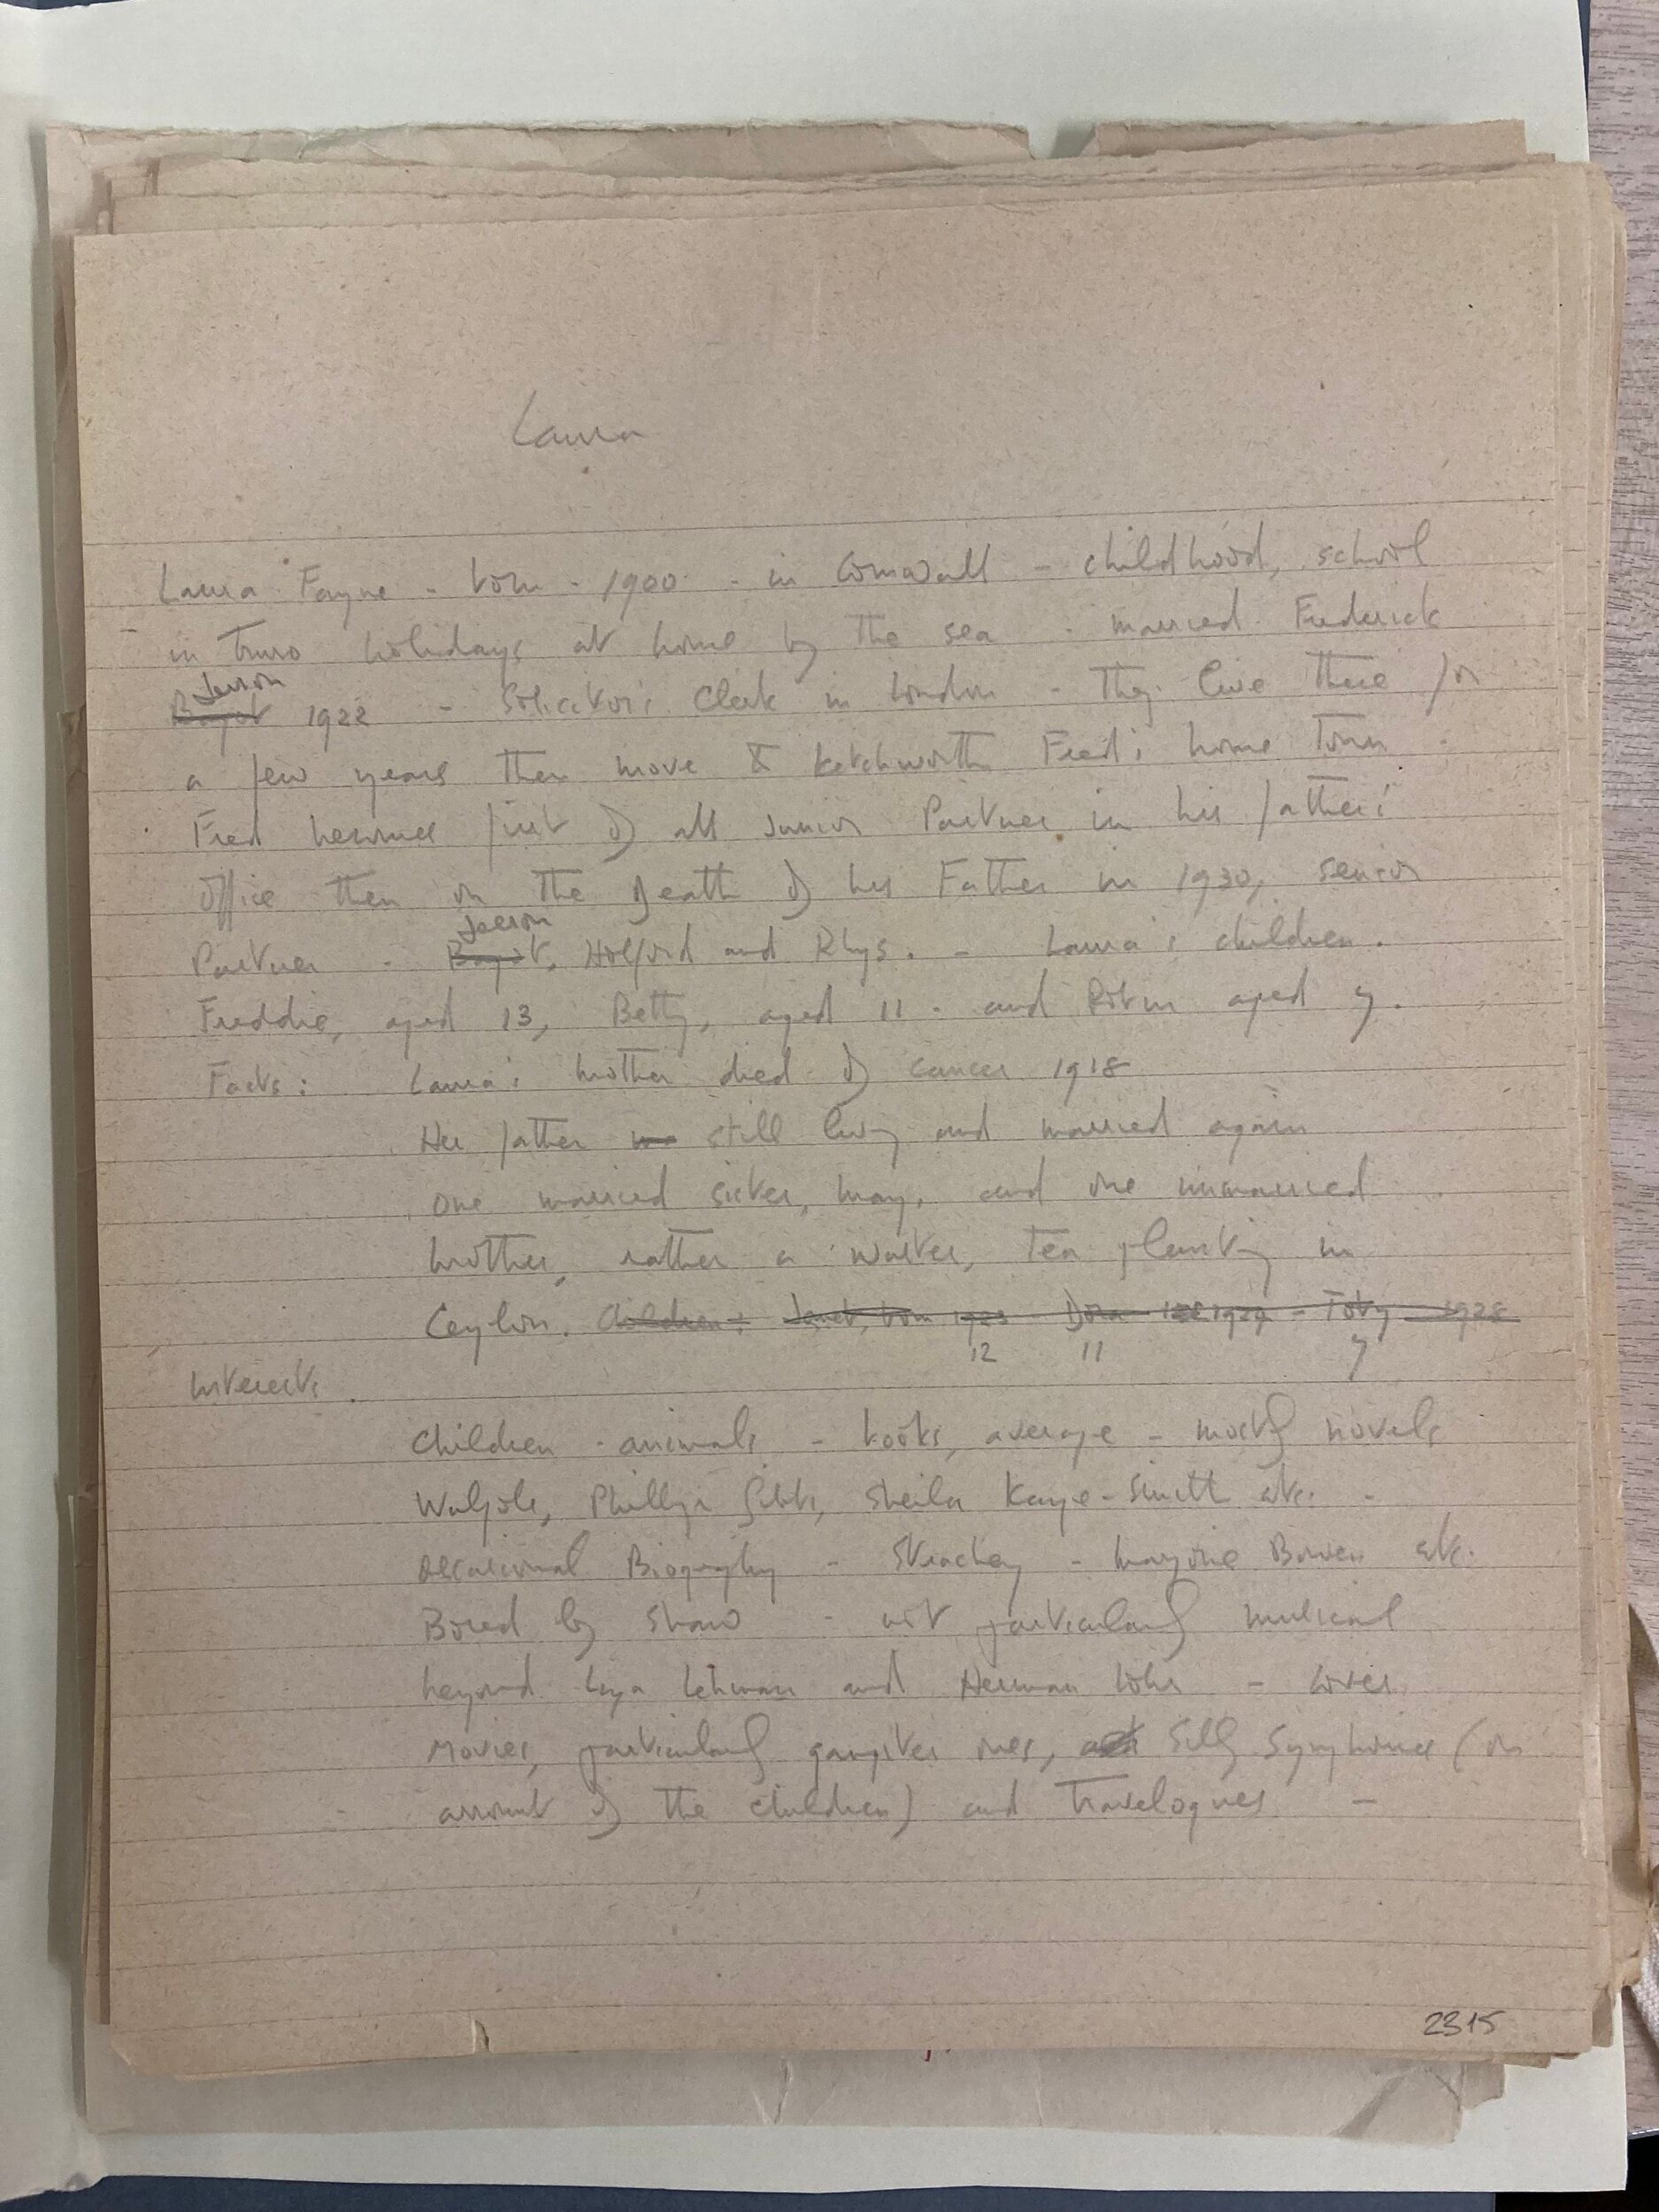 Laura
Laura Fayne - born - 1900 - in Cornwall - childhood, school
in Truro holidays at home by the sea - married Frederick
Jesson
Bagot 1922 - Solicitor's Clerk in London - They live there for
a few years then move to Ketchworth Fred's home town -
Fred becomes first of all Junior Partner in his father's
office then on the death of his Father in 1930, senior
Jesson
Partner - Bagot, Holford and Rhys. - Laura's children.
Freddie, aged 13, Betty, aged 11 - and Robin aged 7.
Facts: Laura's mother died of cancer 1918
Her father was still living and married again
One married sister, May, and one unmarried
brother, rather a waster, tea planting in
Ceylon. Children: Janet, born 1923 - Dora 1924 - Toby 1928
12 11 7
Interests.
Children - animals - books, average - mostly novels
Walpole, Phillip Gibbs, Sheila Kaye-Smith etc. -
occasional Biography - Strachey - Marjorie Bowen etc.
Bored by Shaw - not particularly musical
beyond Liza Lehman and Herman Lohr - Loves
Movies, particularly gangster ones, Silly Symphonies (on
account of the children) and Travelogues -
2315